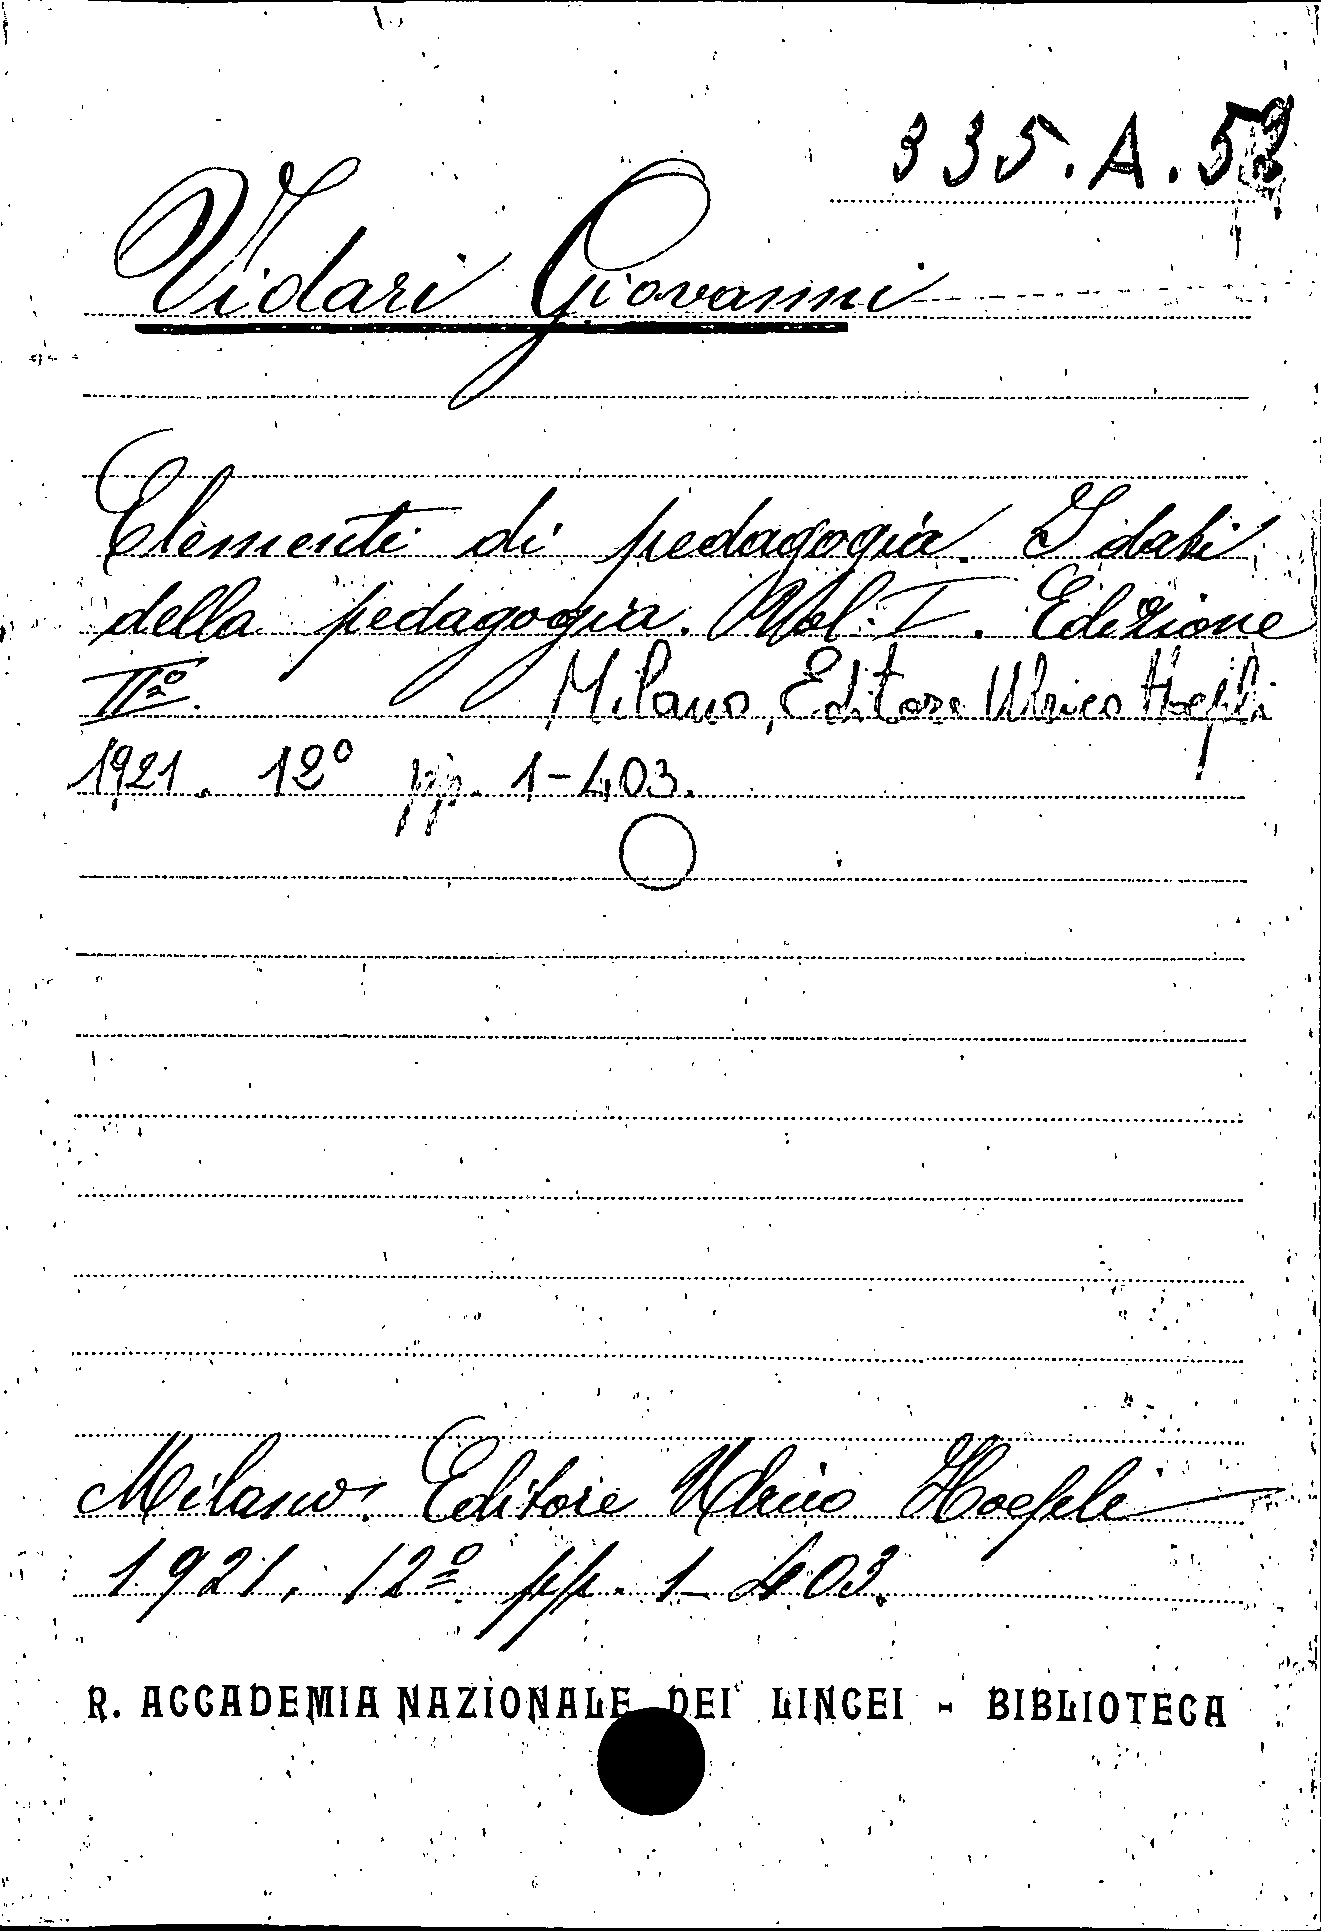 335.A.52
Vidari Giovanni
Elementi di pedagogia. I dati
della pedagogia. Vol. I. Edizione
IIª. Milano, Editore Ulrico Hoepli
1921. 12º pp. 1-403.
Milano. Editore Ulrico Hoepli
1921. 12º pp. 1-403.
R. ACCADEMIA NAZIONALE DEI LINCEI - BIBLIOTECA